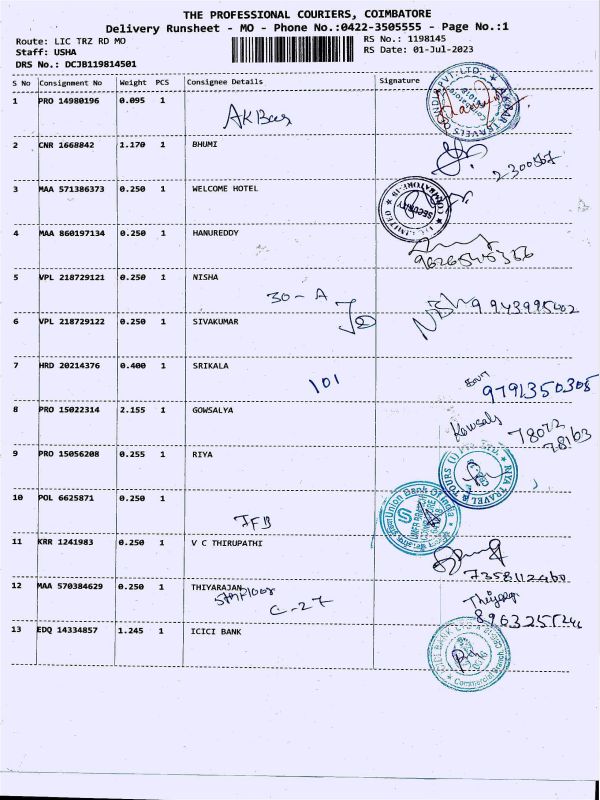 THE PROFESSIONAL COURIERS, COIMBATORE
Delivery Runsheet - MO - Phone No.:0422-3505555 - Page No.:1
Route: LIC TRZ RD MO RS No.: 1198145
Staff: USHA RS Date: 01-Jul-2023
DRS No.: DCJB119814501
S No Consignment No Weight PCS Consignee Details Signature
1 PRO 14980196 0.095 1
AKBar
2 CNR 1668842 1.170 1 BHUMI
2300567
3 MAA 571386373 0.250 1 WELCOME HOTEL
SECURITY
4 MAA 860197134 0.250 1 HANUREDDY
9626545356
5 VPL 218729121 0.250 1 NISHA
30-A
Nisha 9943995402
6 VPL 218729122 0.250 1 SIVAKUMAR
7 HRD 20214376 0.400 1 SRIKALA
101
9791350305
8 PRO 15022314 2.155 1 GOWSALYA
Kowsaly 78072
78163
9 PRO 15056208 0.255 1 RIYA
RIYA TRAVEL & TOURS (I)
10 POL 6625871 0.250 1
Union Bank Of India
11 KRR 1241983 0.250 1 V C THIRUPATHI
7358112460
12 MAA 570384629 0.250 1 THIYARAJAN
5th Floor
C-27
13 EDQ 14334857 1.245 1 ICICI BANK
Commercial Branch